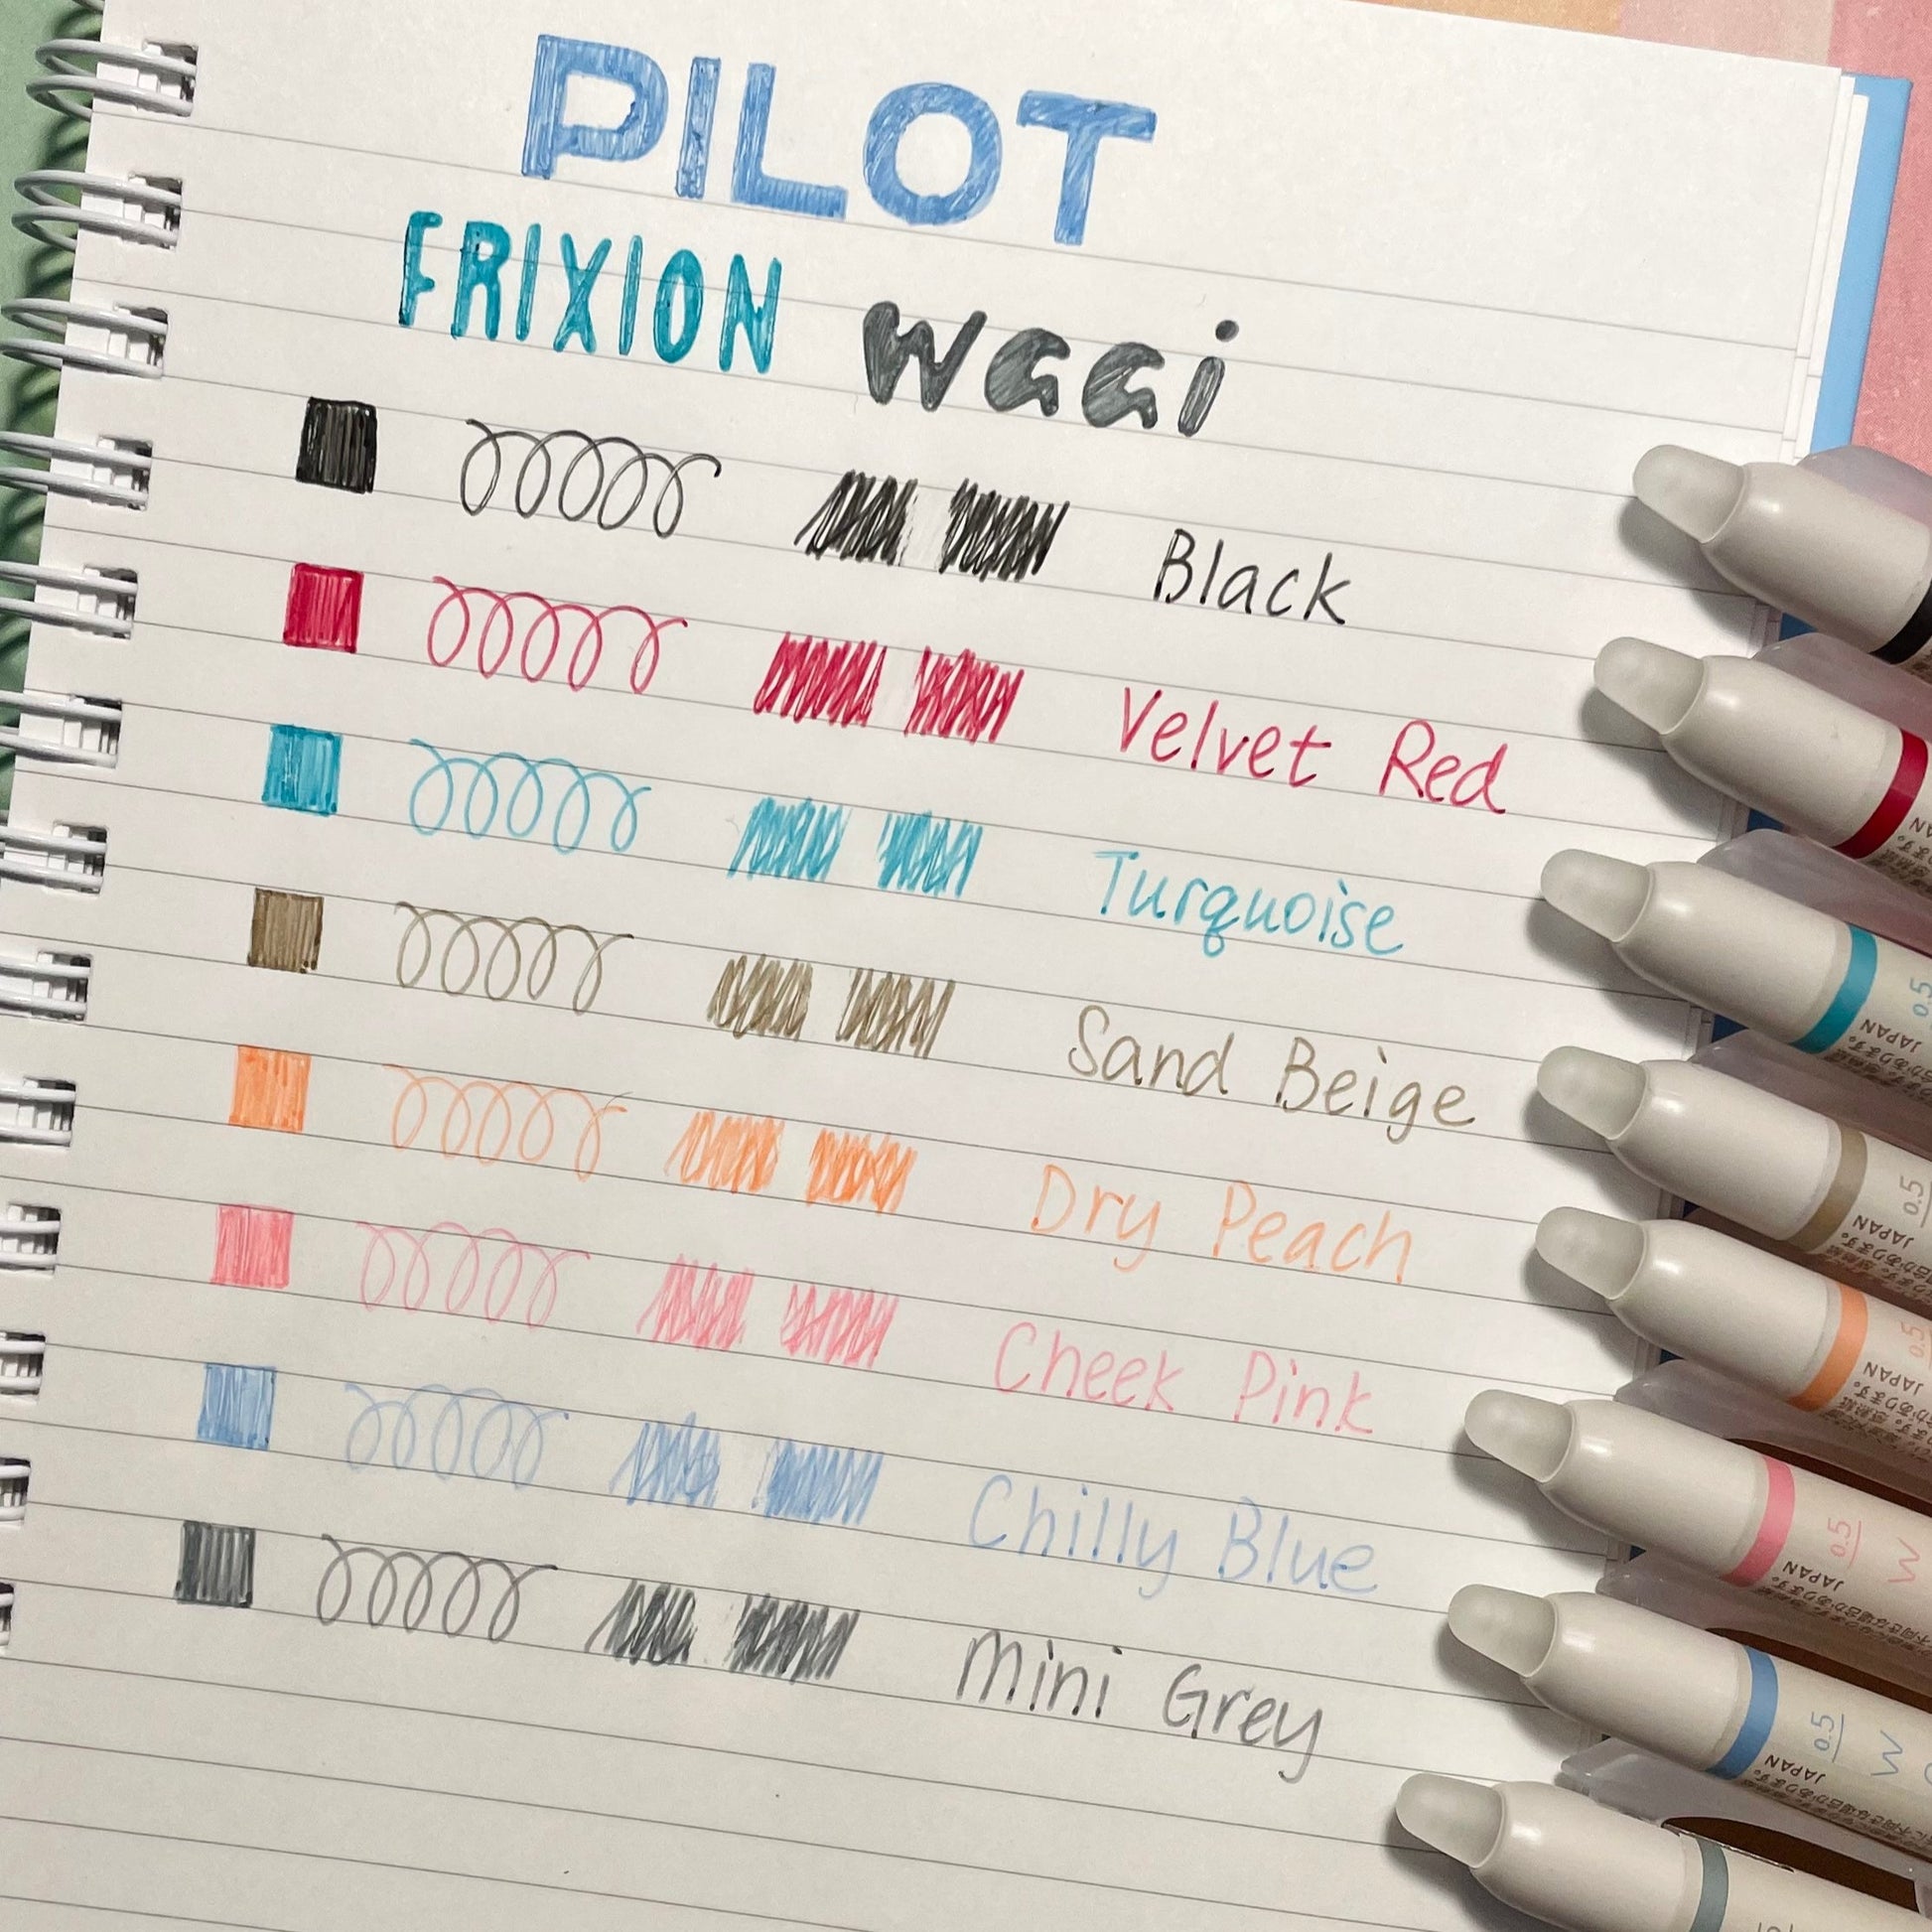 PILOT
FRIXION waai
Black
Velvet Red
Turquoise
Sand Beige
Dry Peach
Cheek Pink
Chilly Blue
Mini Grey
0.5
JAPAN
0.5
JAPAN
0.5
JAPAN
0.5
JAPAN
W
0.5
JAPAN
W